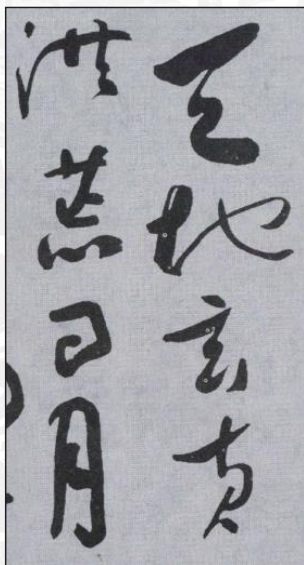 天地玄黄
洪荒日月